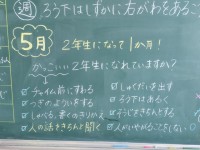 週 ろう下はしずかに右がわをあるこ
5月 2年生になって1か月!
かっこいい2年生になれていますか?
チャイム前にすわる
つぎのよういをする
しゃべる、書くのきりかえ
人の話をきちんと聞く
しゅくだいを出す
ろう下はあるく
そうじをきちんとする
人がいやがることをしない